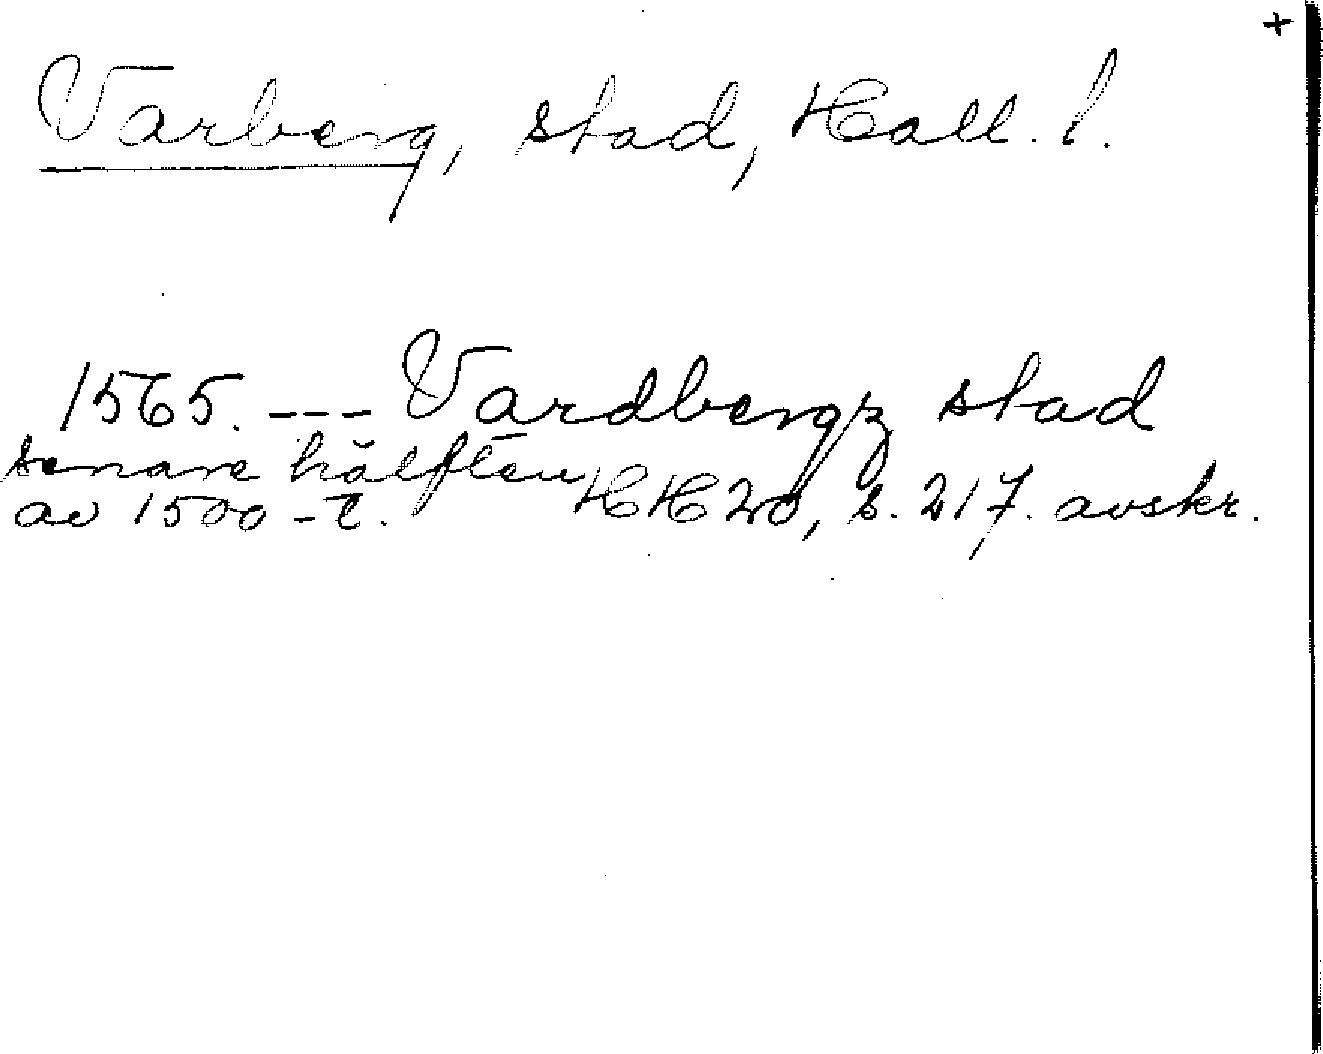 +
Varberg, stad, Hall. l.
1565. --- Vardbergz stad
senare hälften
av 1500-t. HH20, s. 217. avskr.